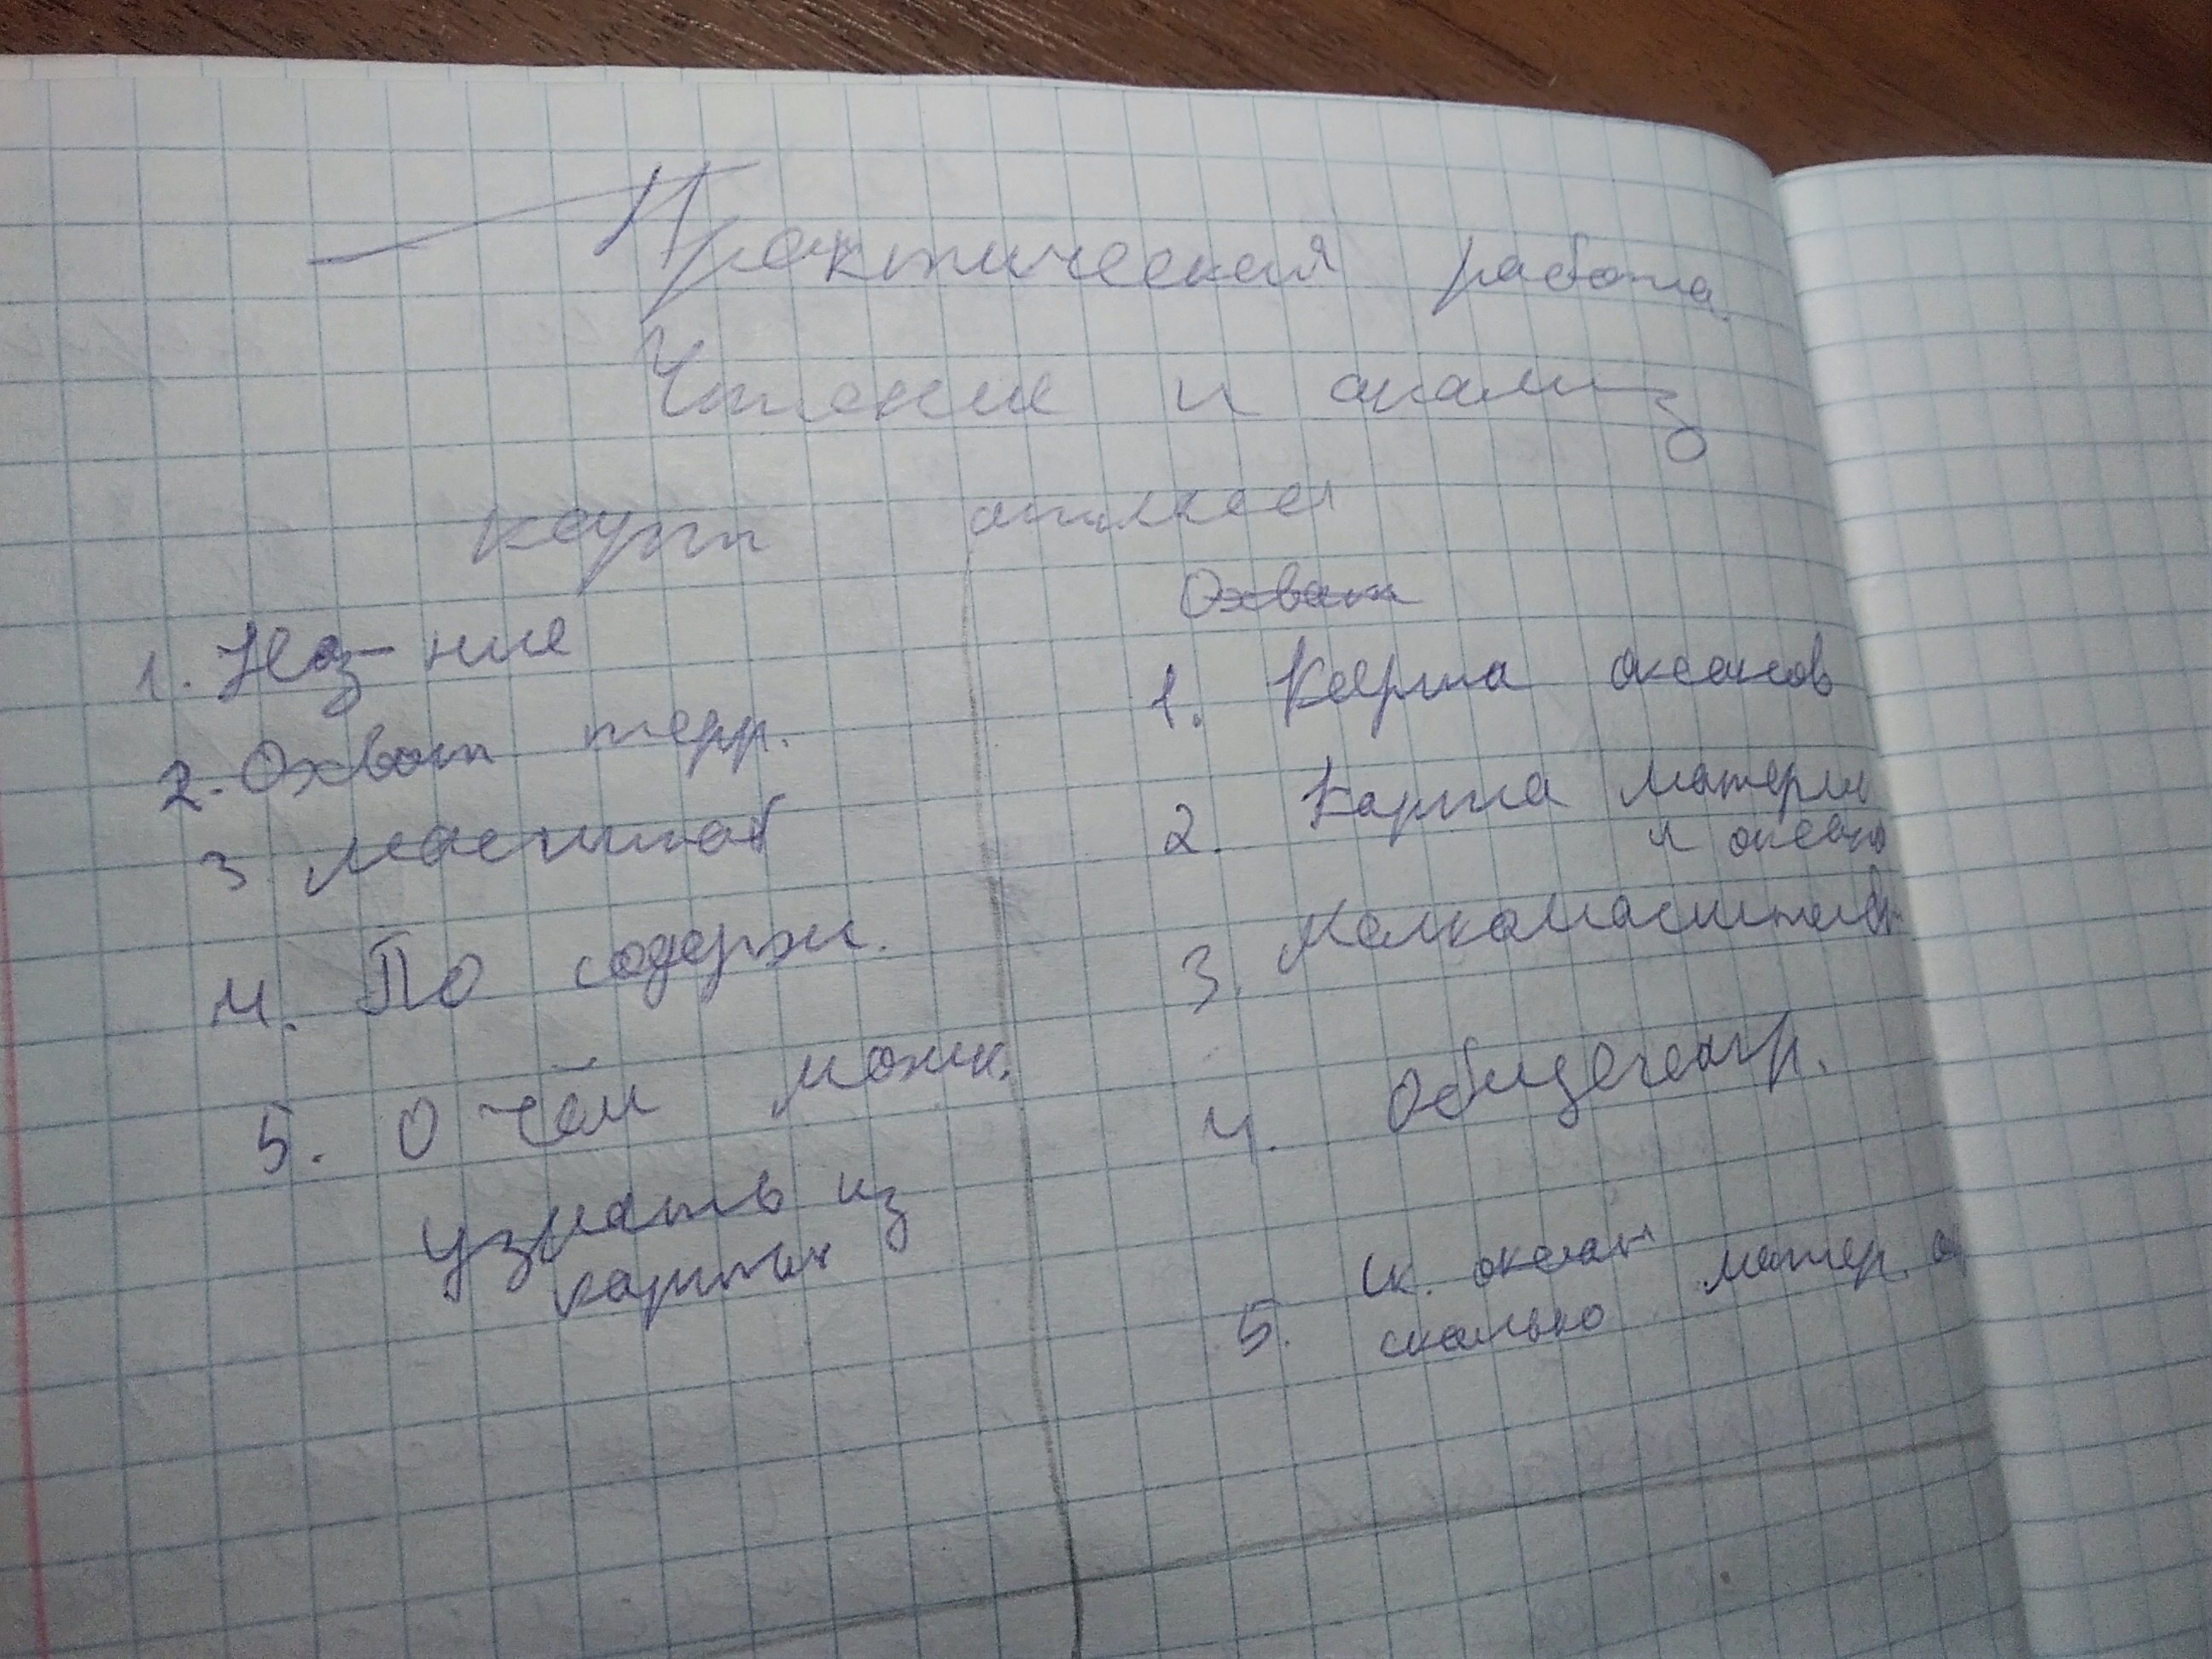 Практическая работа
Чтение и анализ
карт атласа
1. Наз-ние
2. Охват терр.
3 масштаб
4. По содерж.
5. О чём можн.
узнать из
карты
Охват
1. Карта океанов
2. Карта матери
и океано
3. Мелкомасштаб
4. Общегеогр.
5. ск. океан матер.
сколько